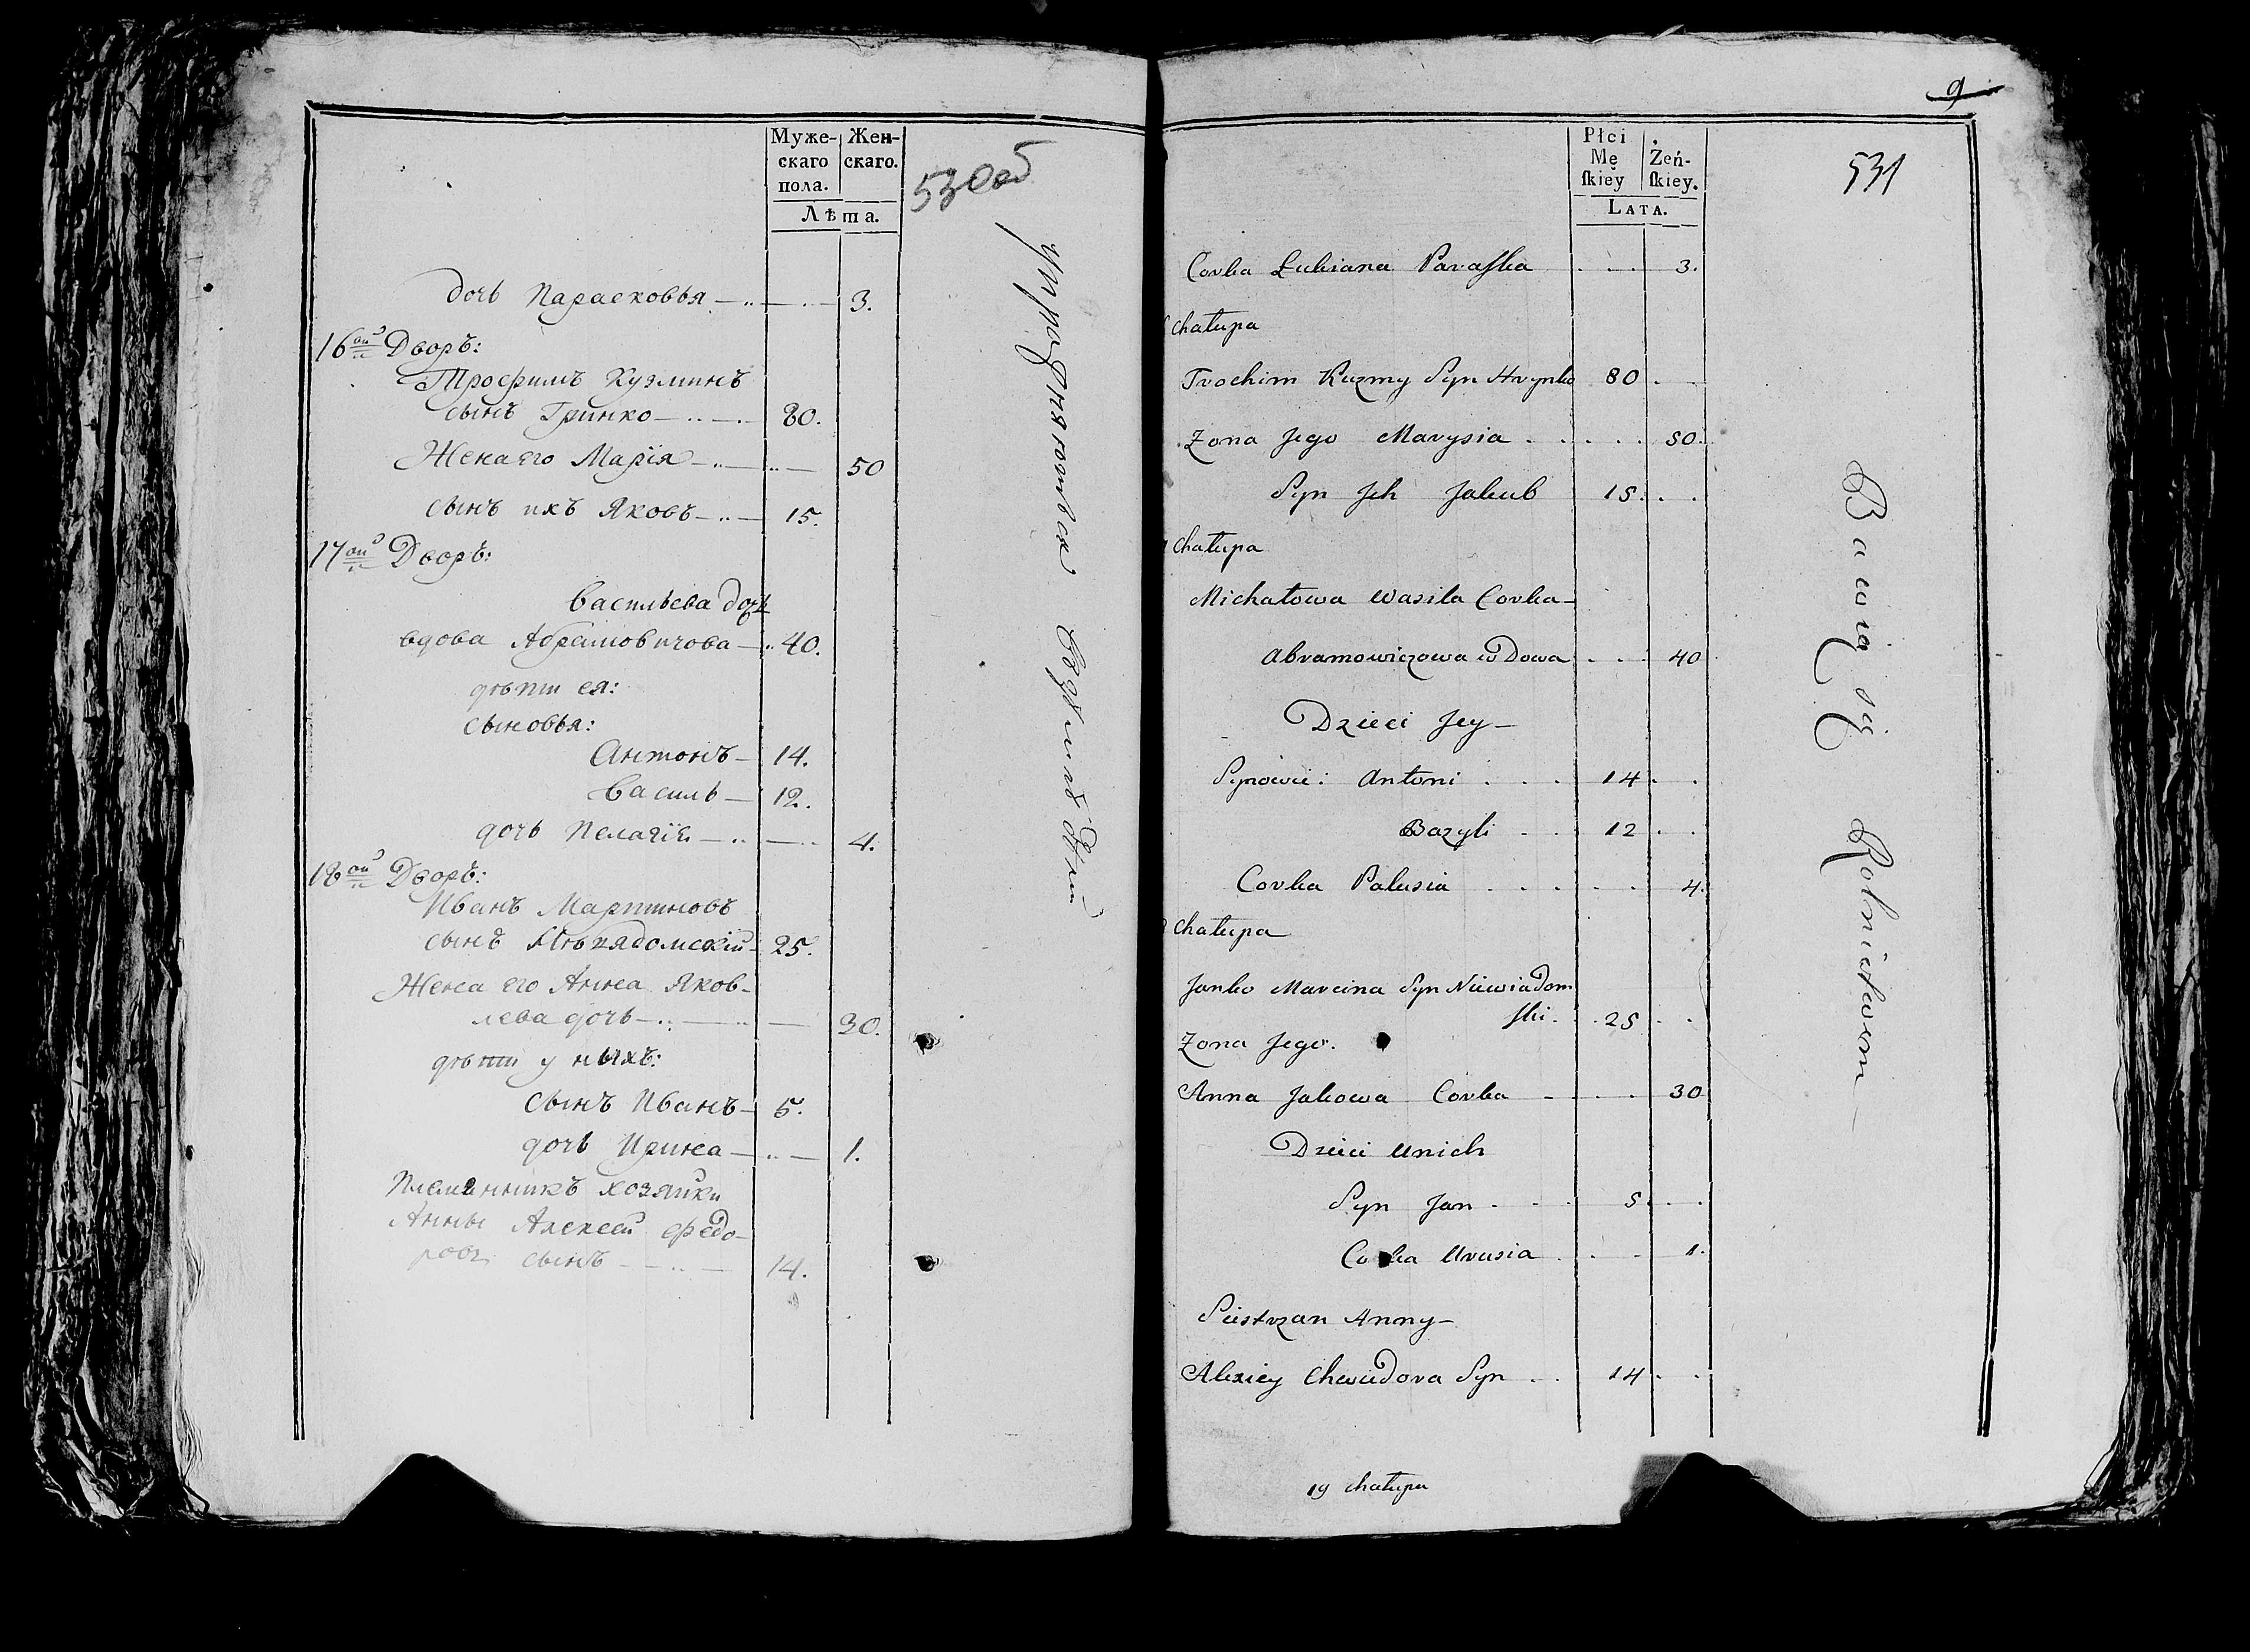 Муже-
скаго
пола.
Жен-
скаго.
Лѣта.
530об
дочь Парасковья 3.
16ой Дворъ:
Трофимъ Кузминъ
сынъ Гринко 80.
Жена его Марїя 50
сынъ ихъ Яковъ 15.
17ой Дворъ:
Васильева дочь
вдова Абрамовичова 40.
дѣти ея:
сыновья:
Антонъ 14.
Василь 12.
дочь Пелагїя 4.
18ой Дворъ:
Иванъ Мартиновъ
сынъ Невядомскїй 25.
Жена его Анна Яков-
лева дочь 30.
дѣти у ныхъ:
сынъ Иванъ 5.
дочь Ирина 1.
Племянникъ хозяйки
Анны Алексей Федо-
ровъ сынъ 14.
упражняются
9
Płci
Mę
skiey
Żeń-
skiey.
LATA.
531
Corka Łukiana Paraska 3.
chałupa
Trochim Kuzmy Syn Hrynko 80
Zona Jego Marysia 50.
Syn Jch Jakub 15.
chałupa
Michałowa Wasila Corka
Abramowiczowa wdowa 40
Dzieci Jey
Synowie: Antoni 14
Bazyli 12
Corka Palusia 4.
chałupa
Janko Marcina Syn Niewiadom
ski. 25
Zona Jego.
Anna Jakowa Corka 30
Dzieci unich
Syn Jan 5
Corka Urusia 1.
Siestrzan Anny
Alexiey Chwiedora Syn 14
19 chałupa
Bawią się Rolnictwem